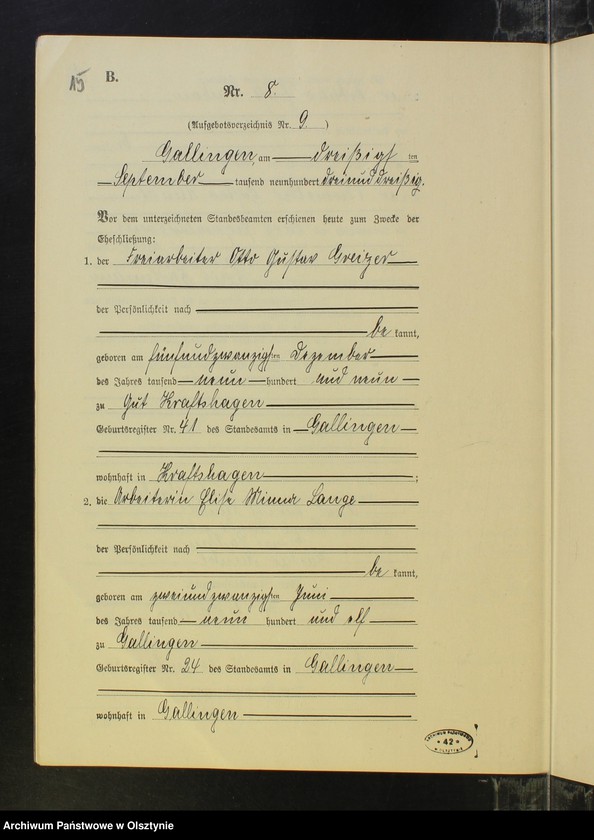 15 B.
Nr. 8.
(Aufgebotsverzeichnis Nr. 9.)
Gallingen, am dreißigsten
September tausend neunhundert dreiunddreißig.
Vor dem unterzeichneten Standesbeamten erschienen heute zum Zwecke der
Eheschließung:
1. der Freiarbeiter Otto Gustav Greizer
der Persönlichkeit nach
be kannt,
geboren am fünfundzwanzigsten Dezember
des Jahres tausend neun hundert und neun
zu Gut Kraftshagen
Geburtsregister Nr. 41 des Standesamts in Gallingen
wohnhaft in Kraftshagen;
2. die Arbeiterin Elise Minna Lange
der Persönlichkeit nach
be kannt,
geboren am zweiundzwanzigsten Juni
des Jahres tausend neun hundert und elf
zu Gallingen
Geburtsregister Nr. 24 des Standesamts in Gallingen
wohnhaft in Gallingen
ARCHIWUM PAŃSTWOWE
* 42 *
W OLSZTYNIE
Archiwum Państwowe w Olsztynie